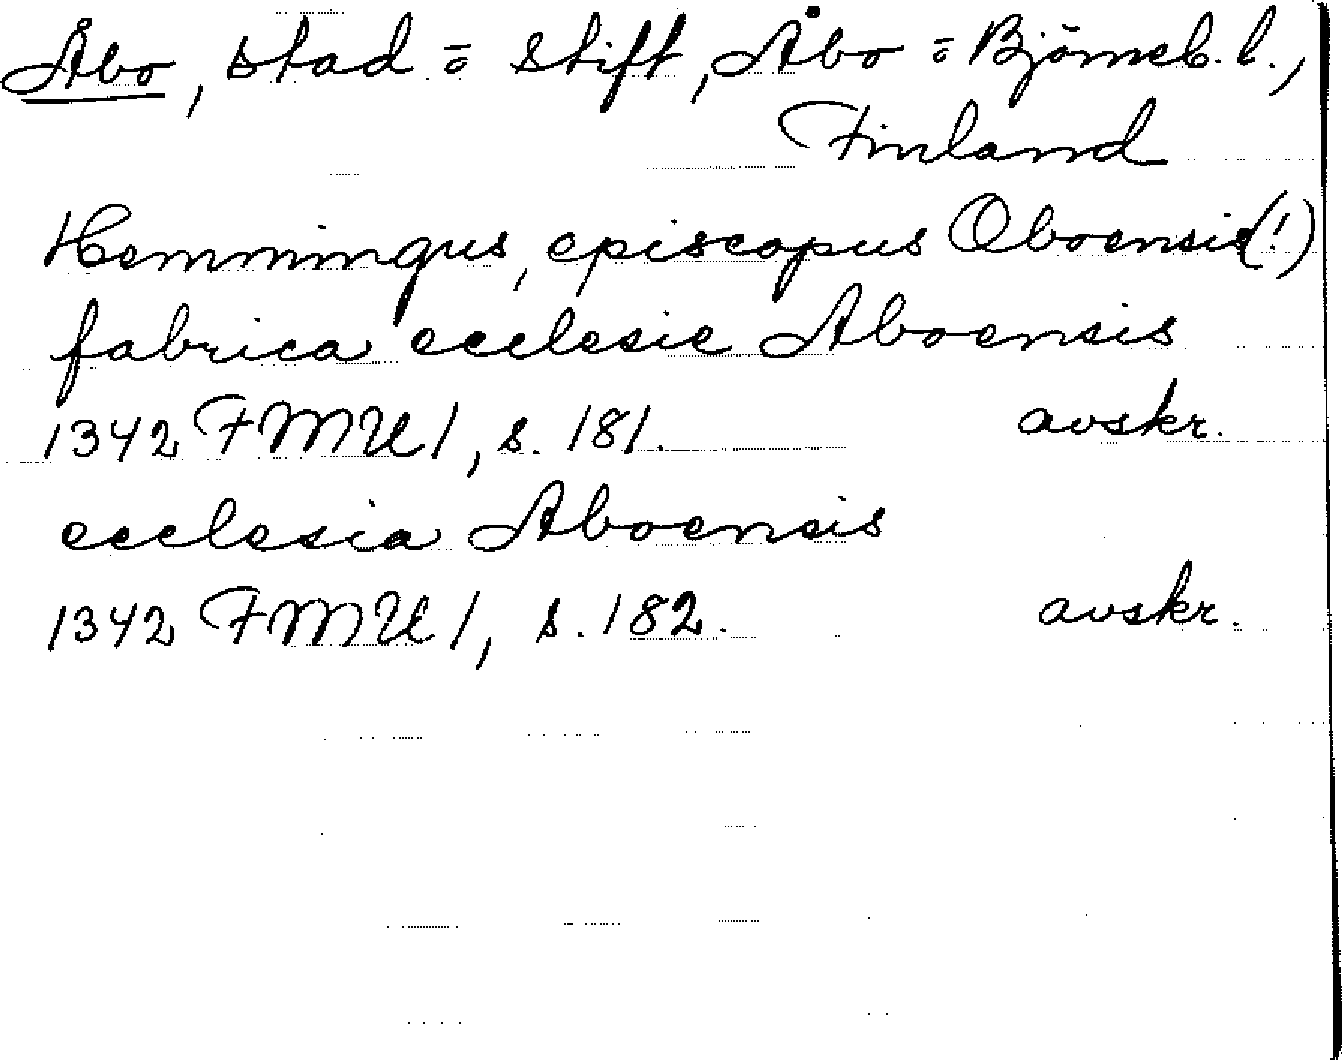 Åbo, stad o stift, Åbo o Björneb. l.,
Finland
Hemmingus, episcopus Oboensis(!)
fabrica ecclesie Aboensis
1342 FMU 1, s. 181. avskr.
ecclesia Aboensis
1342 FMU 1, s. 182. avskr.